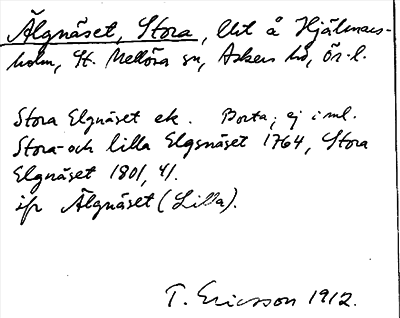 Älgnäset, Stora, Utt å Hjälmars-
holm, St. Mellösa sn, Askers hd, Ör. l.
Stora Elgnäset ek. Borta; ej i ml.
Stora- och lilla Elgsnäset 1764, Stora
Elgnäset 1801, 41.
jfr Älgnäset (Lilla).
T. Ericsson 1912.